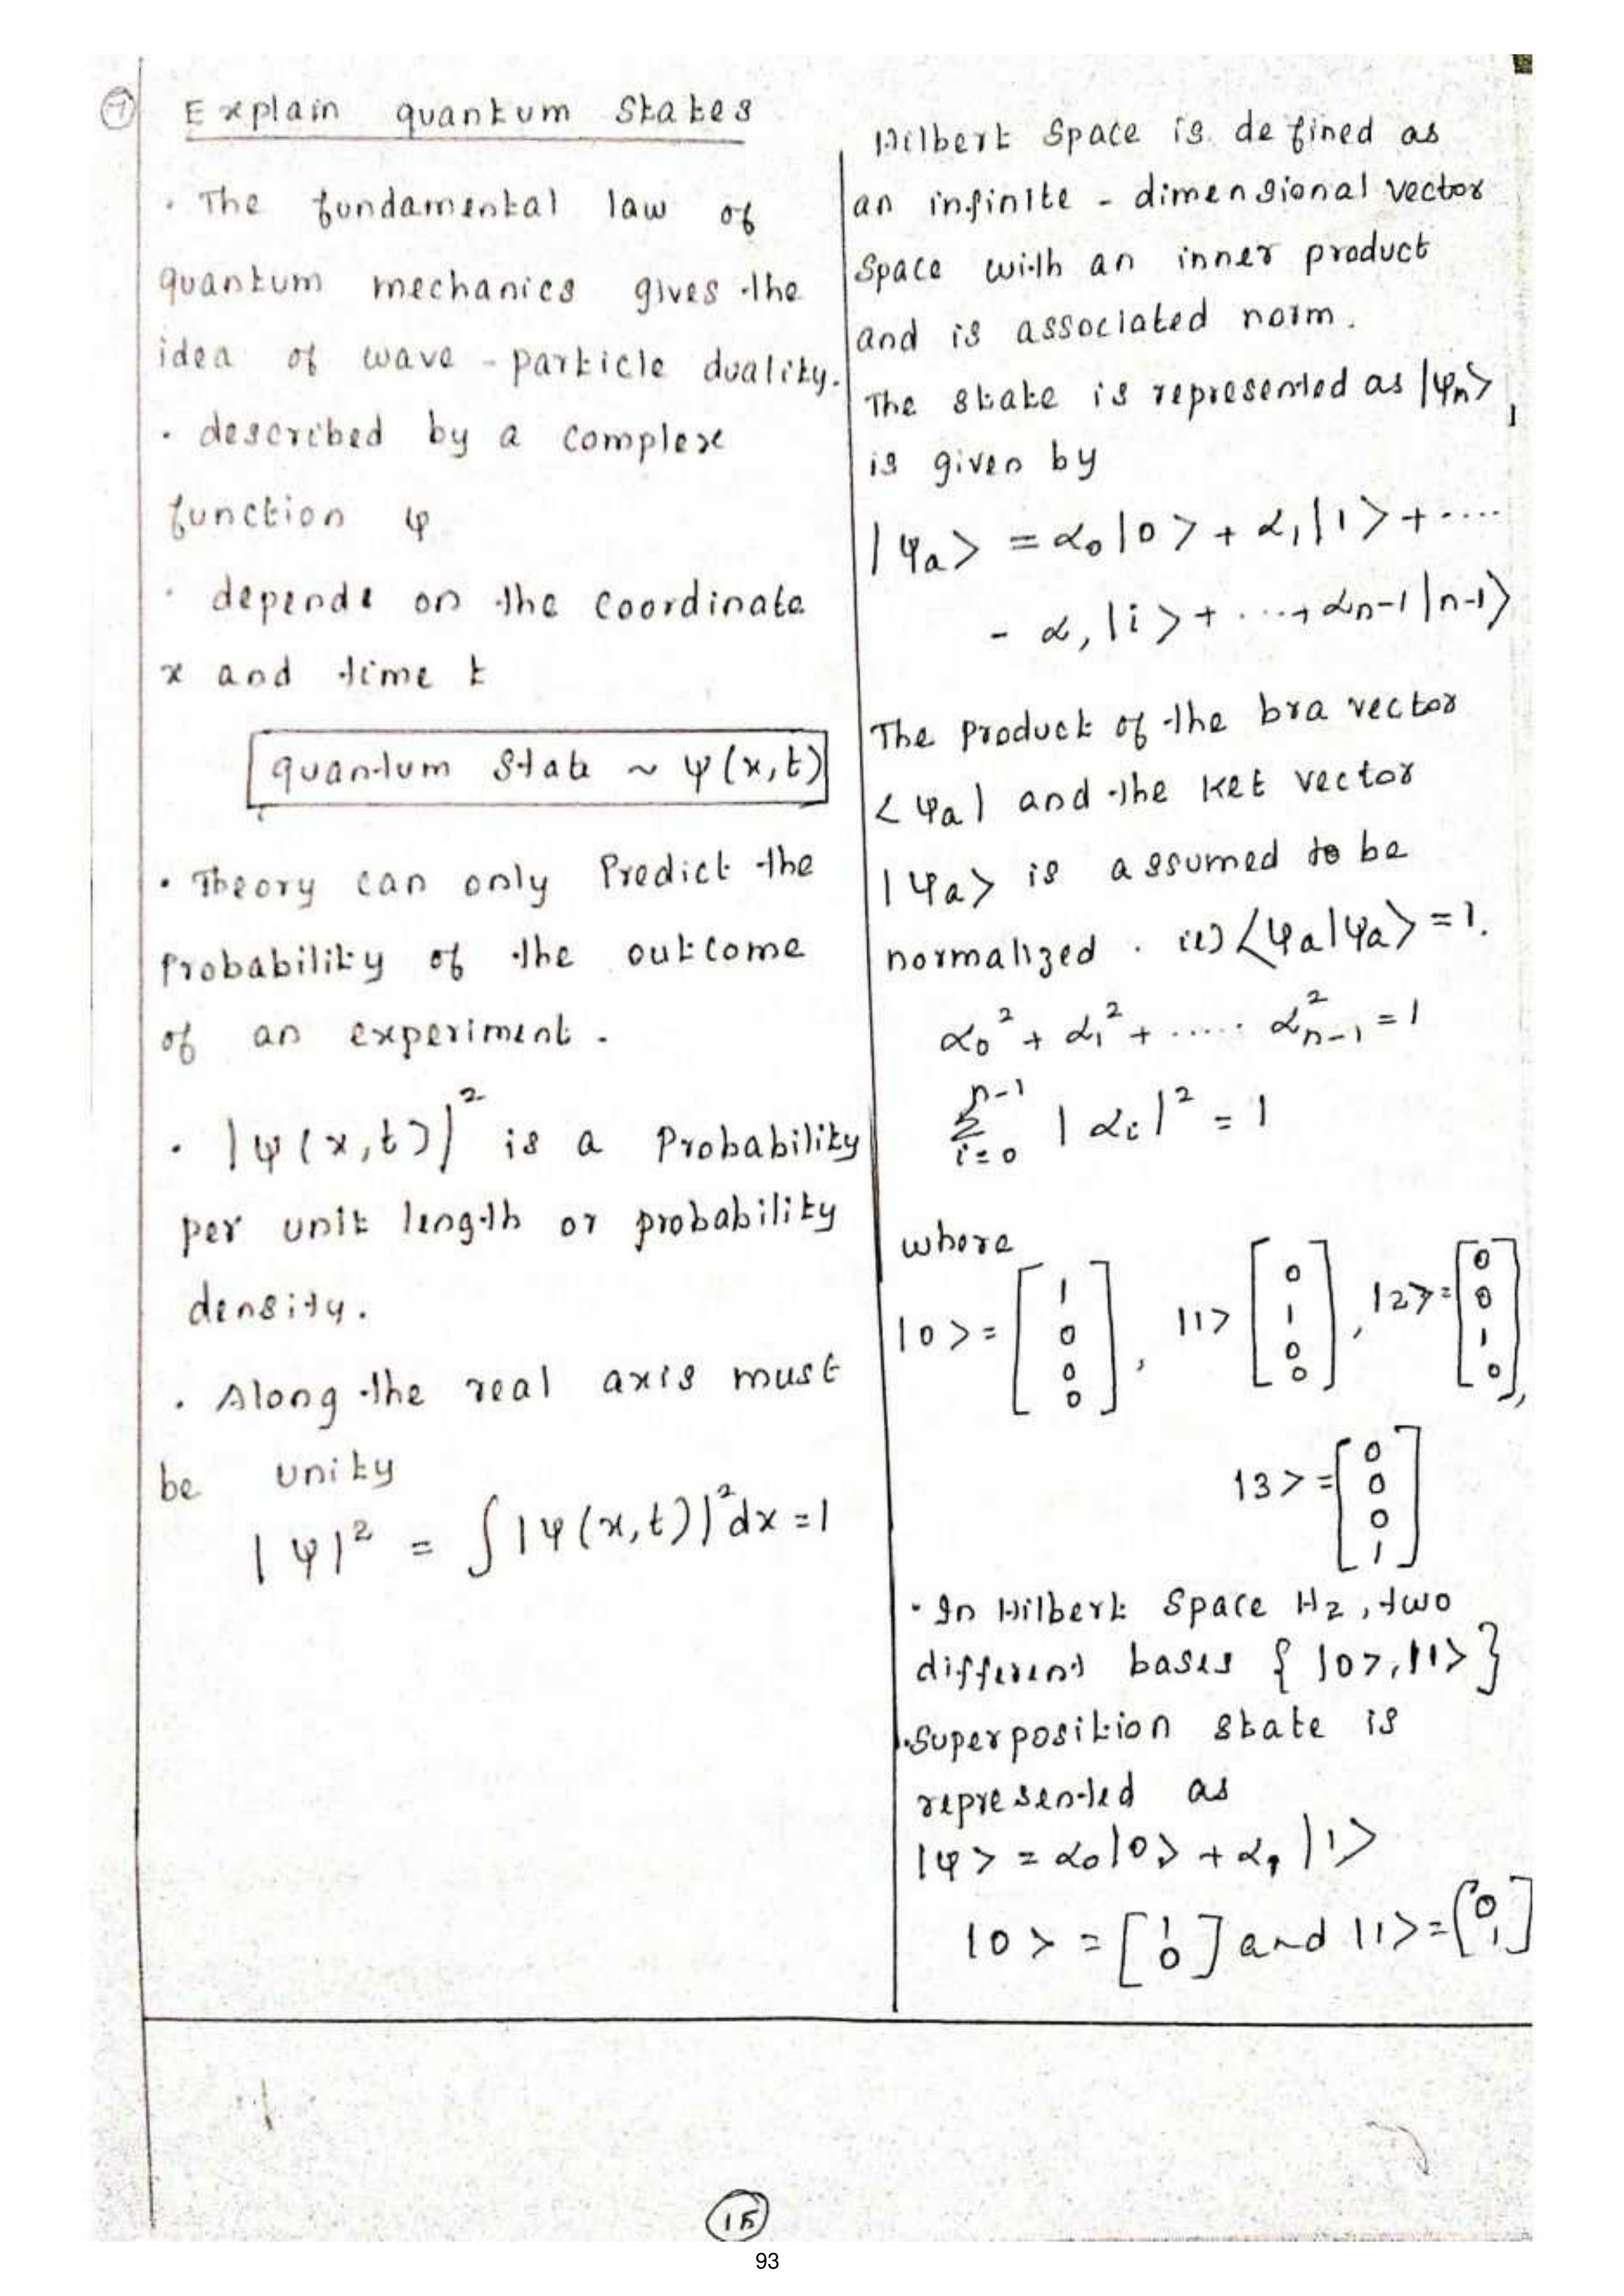 7
Explain quantum States
. The fundamental law of
quantum mechanics gives the
idea of wave - particle duality.
. described by a complex
function ψ
. depends on the coordinate
x and time t
quantum State ~ ψ(x,t)
. Theory can only Predict the
Probability of the outcome
of an experiment.
. |ψ(x,t)|² is a Probability
per unit length or probability
density.
. Along the real axis must
be unity
|ψ|² = ∫|ψ(x,t)|²dx = 1
Hilbert Space is defined as
an infinite - dimensional vector
Space with an inner product
and is associated norm.
The state is represented as |ψn>,
is given by
|ψa> = α0|0> + α1|1> + ....
- α, |i> + ...., αn-1|n-1>
The Product of the bra vector
<ψa| and the Ket vector
|ψa> is assumed to be
normalized . ie) <ψa|ψa> = 1.
α0² + α1² + ..... α²n-1 = 1
n-1
Σ |αi|² = 1
i=0
where
|0> = [1 0 0 0], |1> [0 1 0 0], |2> = [0 0 1 0],
|3> = [0 0 0 1]
. In Hilbert Space H2, two
different bases {|0>, |1>}
. Superposition state is
represented as
|ψ> = α0|0> + α1 |1>
|0> = [1 0] and |1> = [0 1]
15
93